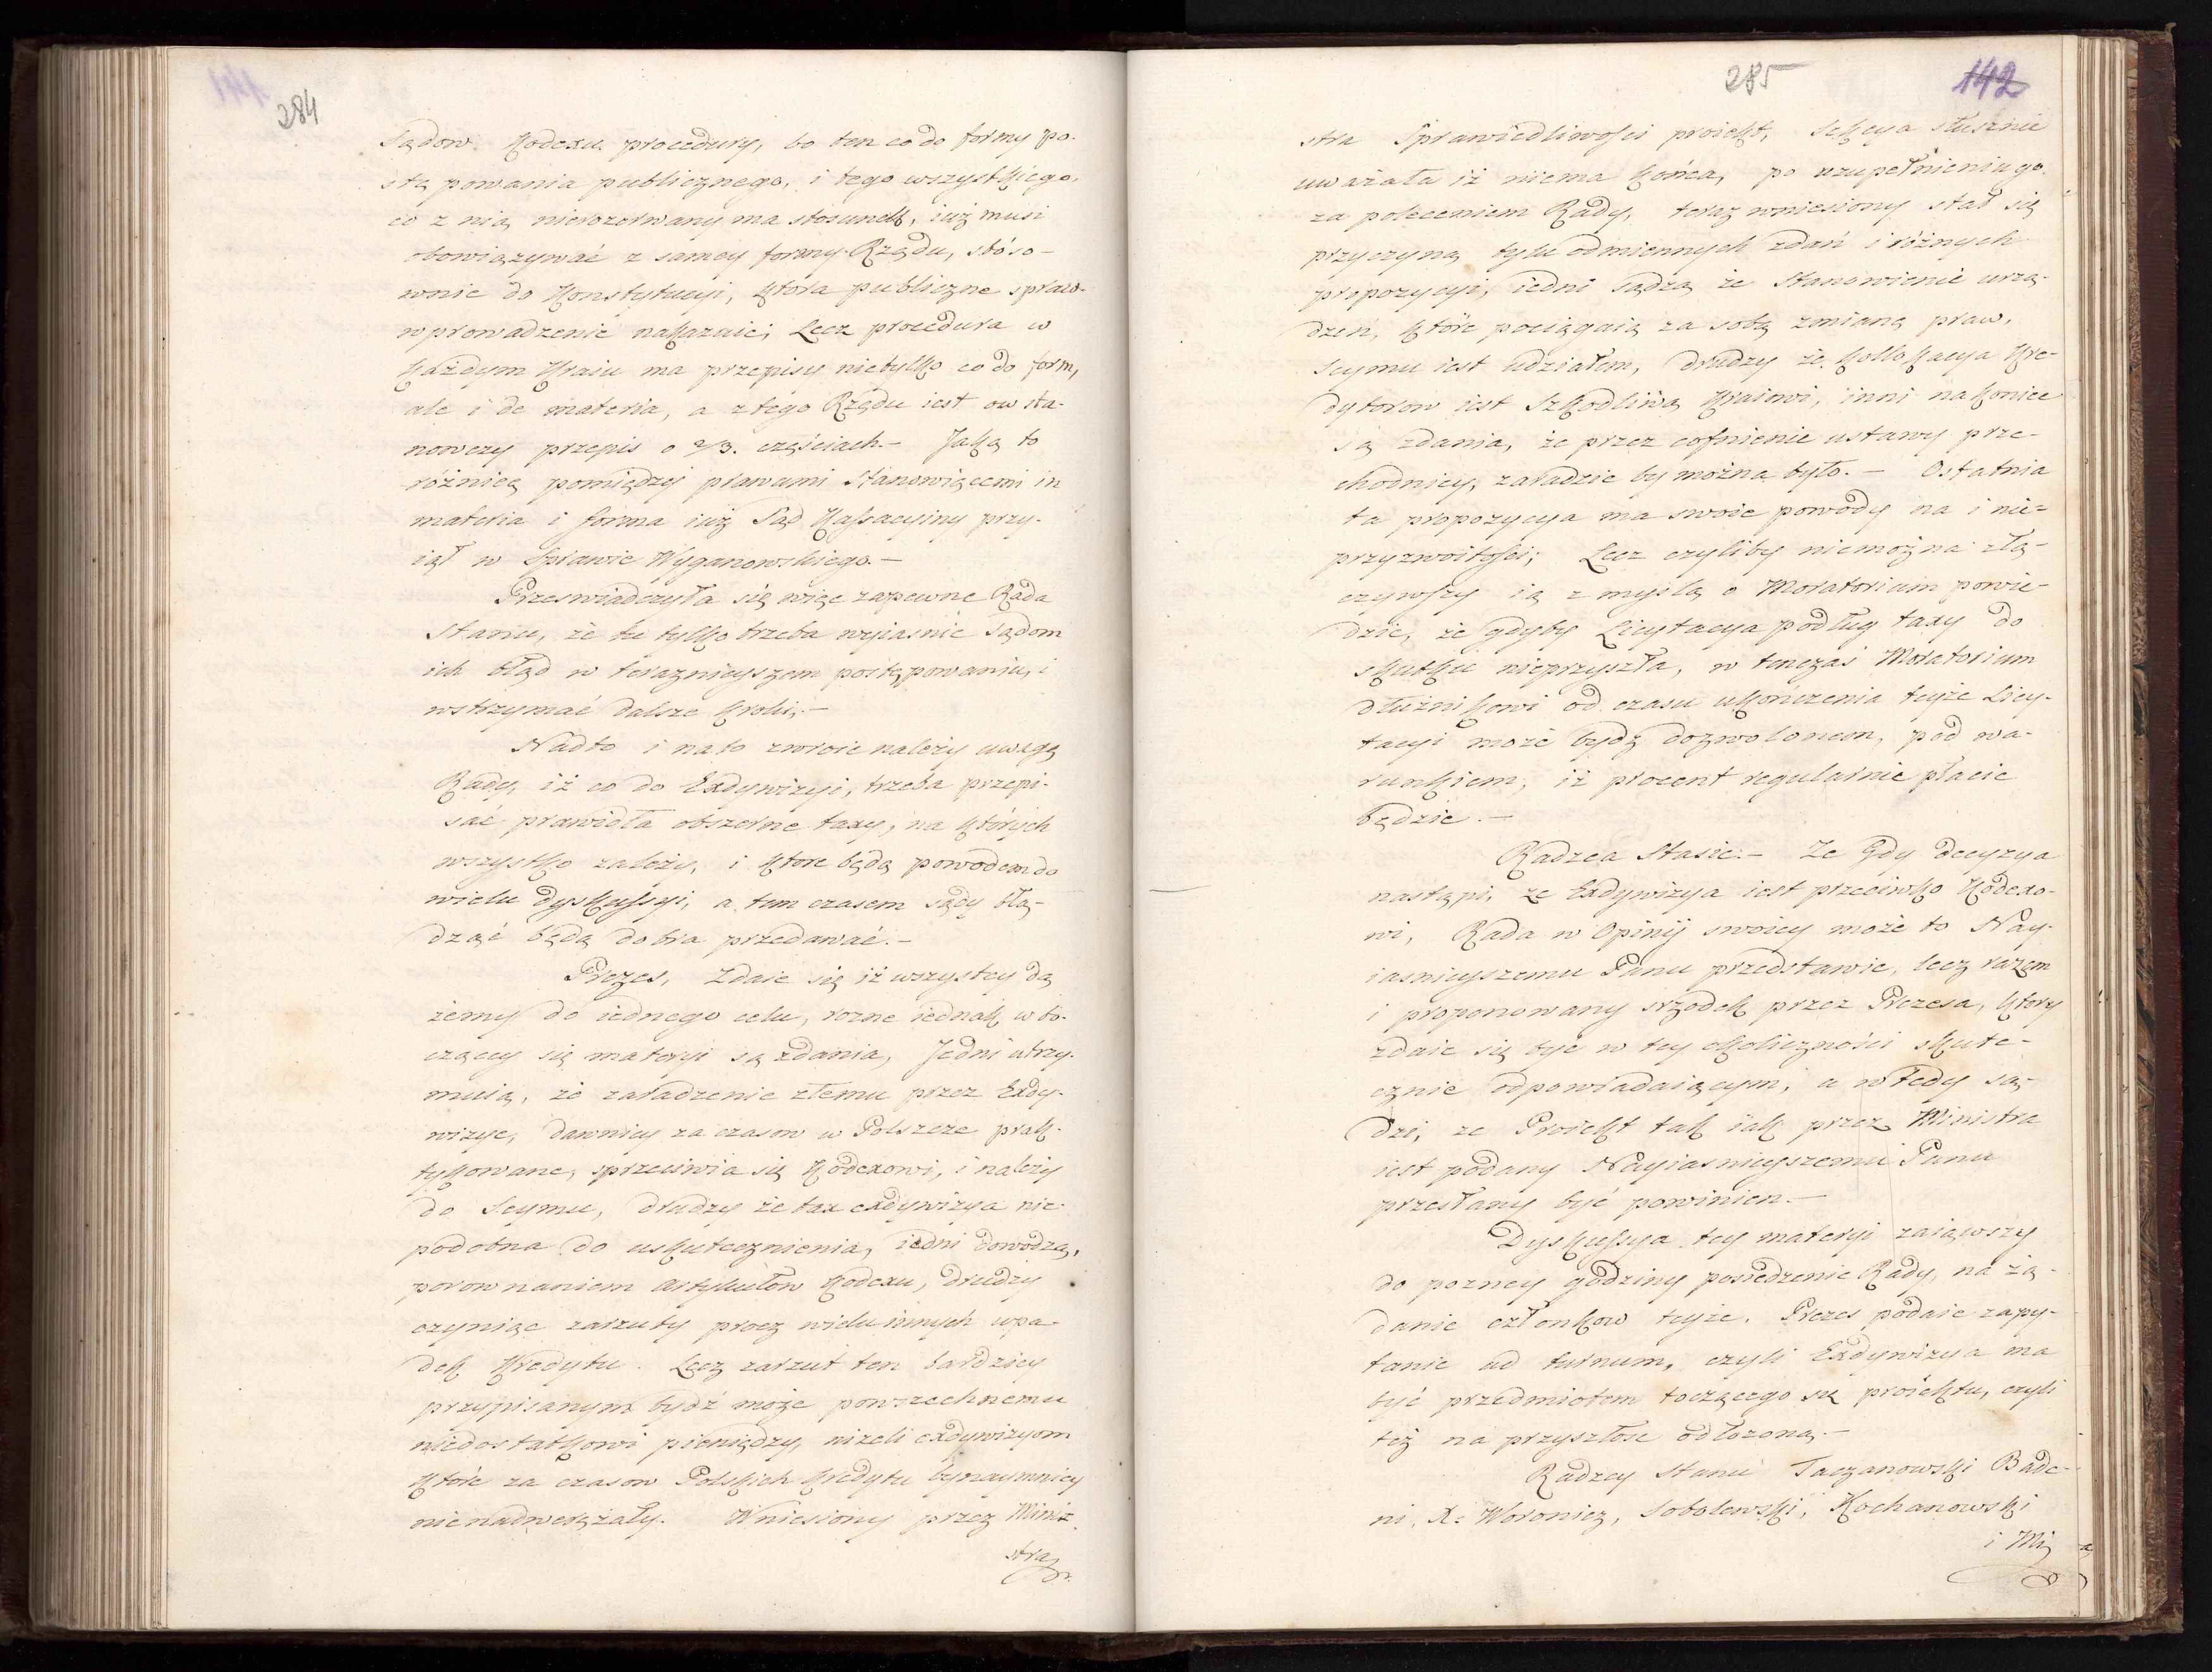 284
Sądow Kodexu procedury, bo ten co do formy po-
stępowania publicznego, i tego wszystkiego,
co z nią nierozerwany ma stosunek, iuż musi
obowiązywać z samey formy Rządu, stóso-
wnie do Konstytucyi, ktora publiczne spraw-
wprowadzenie nakazuie; Lecz procedura w
każdym Kraiu ma przepisy nietylko co do form,
ale i de materia, a z tego Rzędu iest ow sta-
nowczy przepis o 2/3. częściach.- Jaką to
różnicę pomiędzy prawami Stanowiącemi in
materia i forma iuż Sąd Kassacyiny przy-
iął w Sprawie Wyganowskiego.-
Przeswiadczyła się więc zapewne Rada
Stanu, że tu tylko trzeba wyiasnic Sądom
ich błąd w teraznieyszem postępowaniu, i
wstrzymać dalsze kroki,-
Nadto i na to zwrocic należy uwagę
Rady, iż co do Exdywizyi, trzeba przepi-
sać prawidła obszerne taxy, na których
wszystko zależy, i ktore będą powodem do
wielu dyskussyi, a tem czasem sądy błą-
dząć będą dobra przedawać.-
Prezes, Zdaie się iż wszystcy dą
żemy do iednego celu, rozne iednak w to-
czącey się materyi są zdania, Jedni utrzy-
muią, że zaradzenie złemu przez Exdy-
wizye, dawniey za czasow w Polszcze prak-
tykowane, sprzeciwia się Kodexowi, i należy
do Seymu, drudzy że tax exdywizya nie-
podobna do uskutecznienia, iedni dowodzą,
porownaniem Artykułów Kodexu, drudzy
czyniąc zarzuty procz wielu innych upa-
dek Kredytu. Lecz zarzut ten bardziey
przypisanym bydź może powszechnemu
niedostatkowi pieniędzy, niżeli exdywizyom
które za czasow Polskich kredytu bynaymniey
nienadwerężały. Wniesiony przez Mini-
stra
285 142
stra Sprawiedliwości proiekt, Sekcya słusznie
uważała iż niema końca, po uzupełnieniu go
za poleceniem Rady, teraz wniesiony stał się
przyczyną tylu odmiennych zdań i różnych
propozycyi; iedni sądzą że Stanowienie urzą-
dzeń, które pociągaią za sobą zmianę praw,
Seymu iest udziałem, drudzy że kollokacya kre-
dytorow iest szkodliwą kraiowi, inni nakoniec
są zdania, że przez cofnienie ustawy prze-
chodniey, zaradzic by można było.- Ostatnia
ta propozycya ma swoie powody na i nie-
przyzwoitości; Lecz czyliby niemożna złą-
czywszy ią z myslą o Moratorium powie-
dzic, że gdyby Licytacya podług taxy do
skutku nieprzyszła, w tenczas Moratorium
dłużnikowi od czasu ukończenia teyże Licy-
tacyi może bydź dozwolonem, pod wa-
runkiem, iż procent regularnie płacic
będzie.-
Radzca Stasic.- Ze Gdy decyzya
nastąpi, ze Exdywizya iest przeciwko Kodexo-
wi, Rada w Opinij swoiey może to Nay-
iasnieyszemu Panu przedstawic, lecz razem
i proponowany srzodek przez Prezesa, ktory
zdaie się byc w tey okoliczności skute-
cznie odpowiadaiącym, a wtedy są-
dzi, ze Proiekt tak iak przez Ministra
iest podany Nayiasnieyszemu Panu
przesłany być powinien.-
Dyskussya tey materyi zaiąwszy
do pozney godziny posiedzenie Rady, na żą-
danie członkow teyże. Prezes podaie zapy-
tanie ad turnum, czyli Exdywizya ma
być przedmiotem toczącego się proiektu, czyli
też na przyszłosc odłożoną.-
Radzcy Stanu Taczanowski Bade-
ni, X. Woronicz, Sobolewski, Kochanowski
i Mi